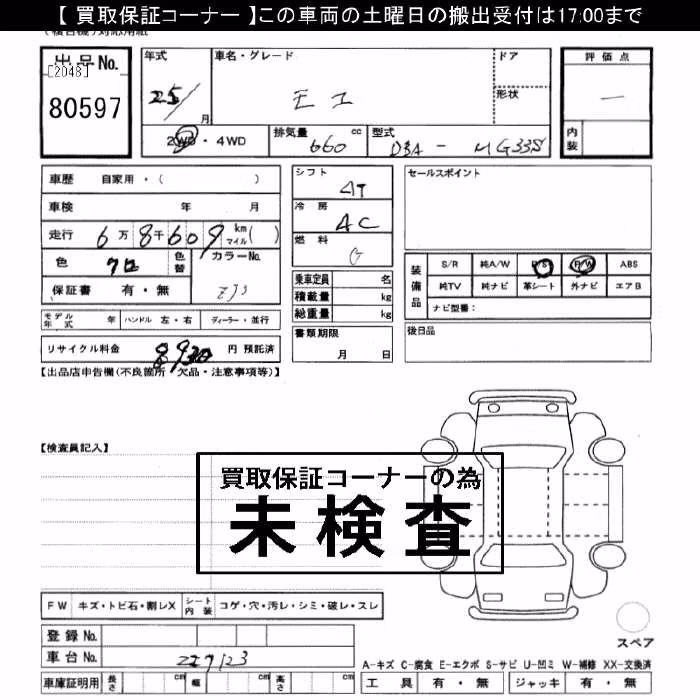 【 買取保証コーナー 】この車両の土曜日の搬出受付は17:00まで
出品No.
[2048]
80597
年式
25/
月
車名・グレード
モコ
ドア
形状
評価点
—
内装
2WD・4WD
排気量
660
cc
型式
DBA - MG33S
車歴 自家用・( )
車検 年 月
走行 6万8千609 km マイル( )
色 クロ
色替
カラーNo.
ZJ3
保証書 有・無
モデル年式 年
ハンドル 左・右
ディーラー・並行
リサイクル料金 8930 円 預託済
シフト
AT
冷房
AC
燃料
G
乗車定員 名
積載量 kg
総重量 kg
書類期限
月 日
セールスポイント
装備品
S/R 純A/W P/S P/W ABS
純TV 純ナビ 革シート 外ナビ エアB
ナビ型番:
後日品
【出品店申告欄(不良箇所・欠品・注意事項等)】
【検査員記入】
買取保証コーナーの為
未検査
FW キズ・トビ石・割レX
シート内装 コゲ・穴・汚レ・シミ・破レ・スレ
登録No.
車台No. 227123
車庫証明用 長さ cm 幅 cm 高さ cm
スペア
A-キズ C-腐食 E-エクボ S-サビ U-凹ミ W-補修 XX-交換済
工具 有・無 ジャッキ 有・無